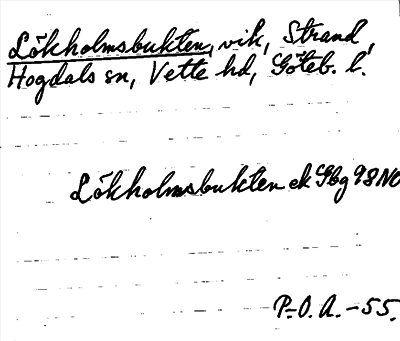 Lökholmsbukten, vik, Strand,
Hogdals sn, Vette hd, Göteb. l.
Lökholmsbukten ek Gbg 98NO
P.O.A. -55.